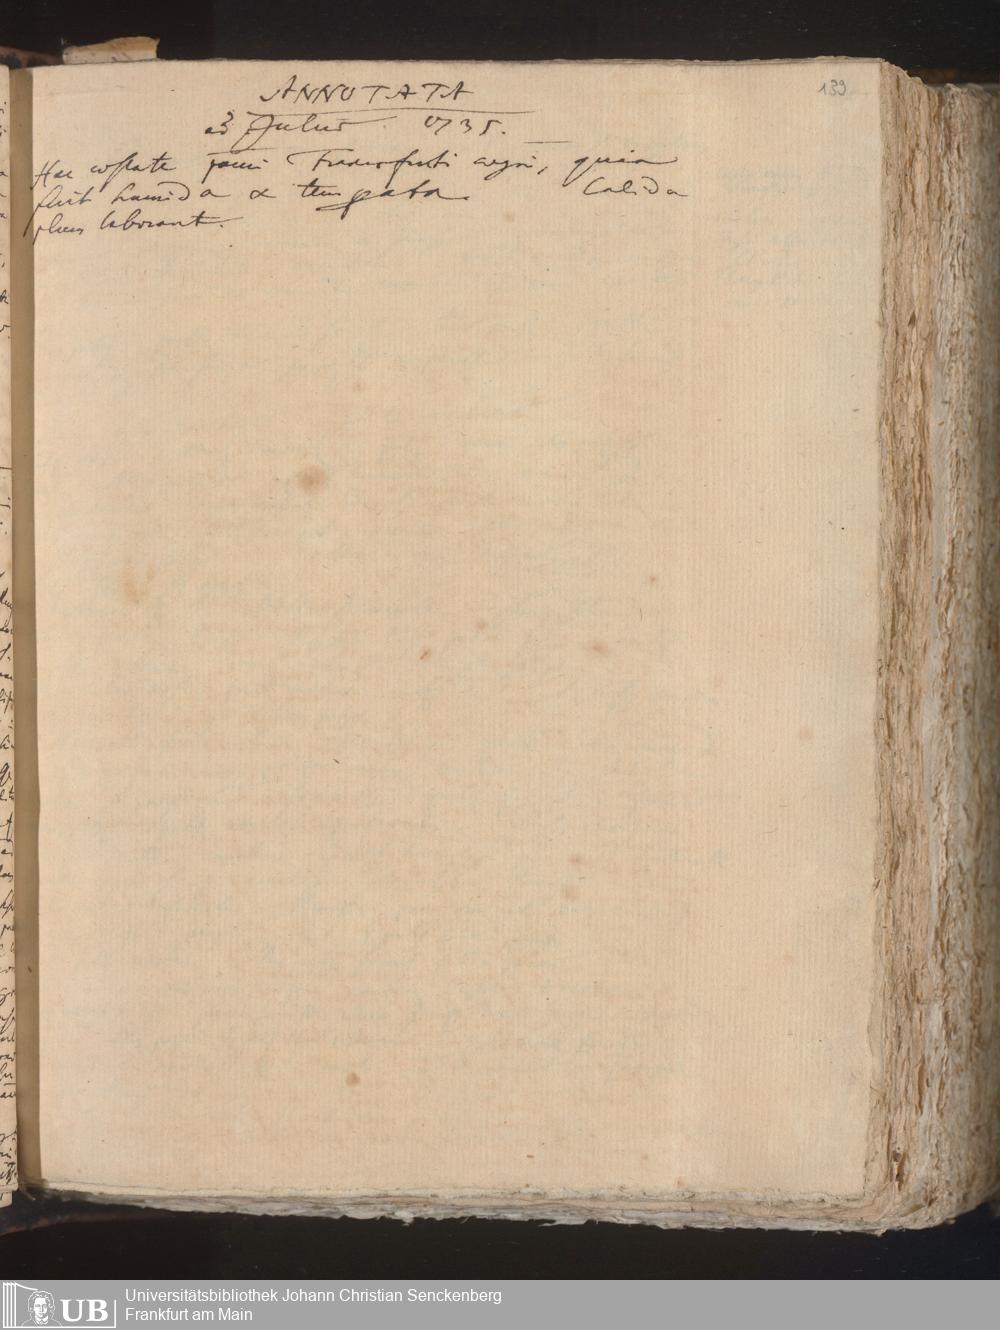 139
ANNOTATA
Julius. 1735.
Hac aestate pauci Francofurti aegri, quia
fuit humida & temperata. Calida
plures laborant.
UB Universitätsbibliothek Johann Christian Senckenberg
Frankfurt am Main